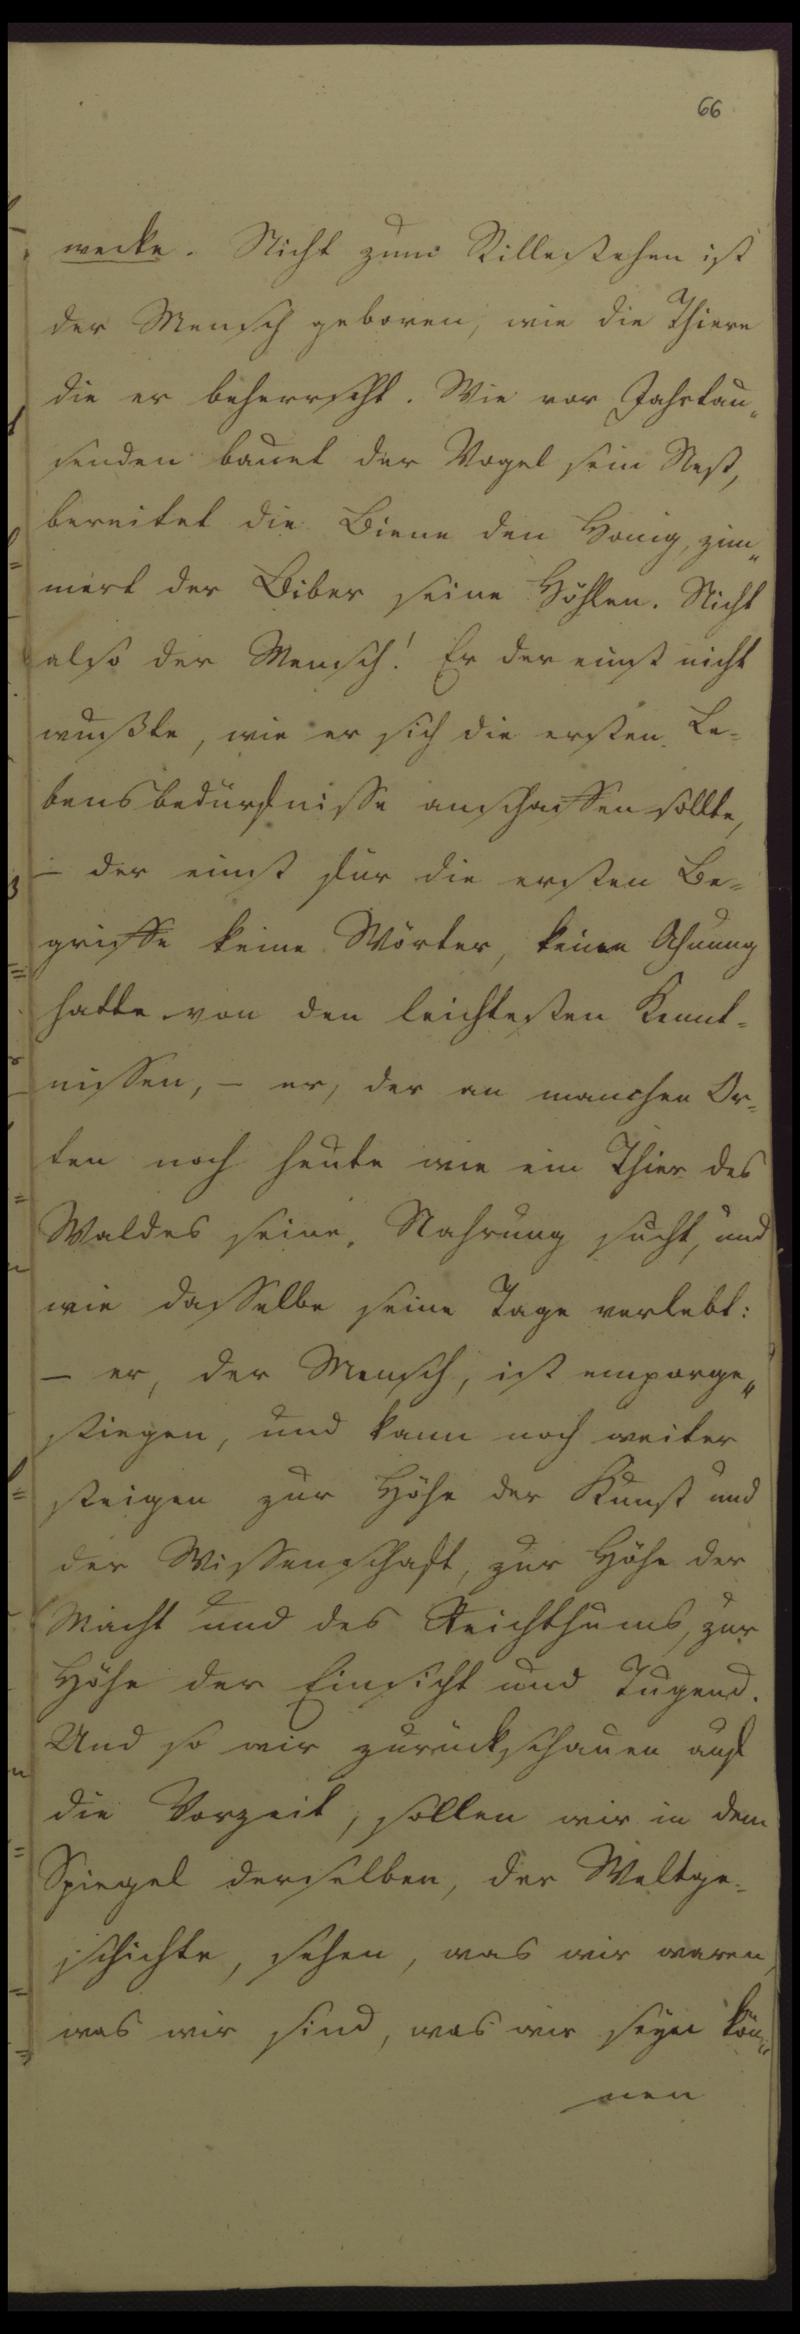 66
wecke. Nicht zum Stillestehen ist
der Mensch geboren, wie die Thiere
die er beherrscht. Wie vor Jahrtau„
senden bauet der Vogel sein Nest,
bereitet die Biene den Honig, zim„
mert der Biber seine Höhlen. Nicht
also der Mensch! Er der einst nicht
wußte, wie er sich die ersten Le-
bensbedürfnisse anschaffen sollte,
– der einst für die ersten Be-
griffe keine Wörter, keine Ahnung
hatte von den leichtesten Kennt-
nissen, – er, der an manchen Or-
ten noch heute wie ein Thier des
Waldes seine Nahrung sucht, und
wie dasselbe seine Tage verlebt:
– er, der Mensch, ist emporge„
stiegen, und kann noch weiter
steigen zur Höhe der Kunst und
der Wissenschaft, zur Höhe der
Macht und des Reichthums, zur
Höhe der Einsicht und Tugend.
Und so wir zurückschauen auf
die Vorzeit, sollen wir in dem
Spiegel derselben, der Weltge-
schichte, sehen, was wir waren,
was wir sind, was wir seyn kön„
nen